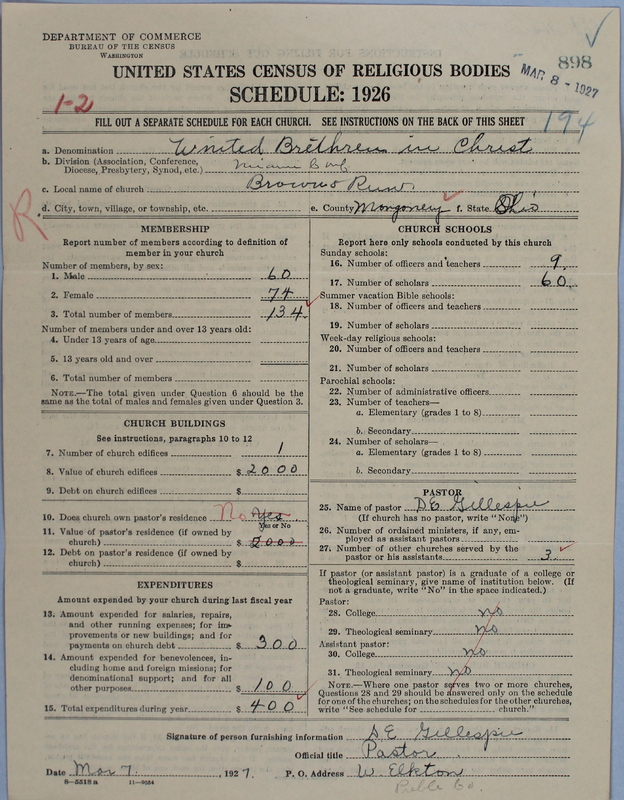 DEPARTMENT OF COMMERCE
BUREAU OF THE CENSUS
WASHINGTON
898
MAR 8 - 1927
UNITED STATES CENSUS OF RELIGIOUS BODIES
SCHEDULE: 1926
1-2
194
FILL OUT A SEPARATE SCHEDULE FOR EACH CHURCH. SEE INSTRUCTIONS ON THE BACK OF THIS SHEET
a. Denomination United Brethren in Christ
b. Division (Association, Conference, Diocese, Presbytery, Synod, etc.) Miami Conf
c. Local name of church Browns Run
R
d. City, town, village, or township, etc. e. County Mongonery f. State Ohio
MEMBERSHIP
Report number of members according to definition of
member in your church
Number of members, by sex:
1. Male 60
2. Female 74
3. Total number of members 134
Number of members under and over 13 years old:
4. Under 13 years of age
5. 13 years old and over
6. Total number of members
NOTE.—The total given under Question 6 should be
same as the total of males and females given under Question 3.
CHURCH BUILDINGS
See instructions, paragraphs 10 to 12
7. Number of church edifices 1
8. Value of church edifices $2000
9. Debt on church edifices $
10. Does church own pastor's residence No Yes
Yes or No
11. Value of pastor's residence (if owned by
church) $2000
12. Debt on pastor's residence (if owned by
church) $
EXPENDITURES
Amount expended by your church during last fiscal year
13. Amount expended for salaries, repairs,
and other running expenses; for im-
provements or new buildings; and for
payments on church debt $300
14. Amount expended for benevolences, in-
cluding home and foreign missions; for
denominational support; and for all
other purposes $100
15. Total expenditures during year $400
CHURCH SCHOOLS
Report here only schools conducted by this church
Sunday schools:
16. Number of officers and teachers 9
17. Number of scholars 60
Summer vacation Bible schools:
18. Number of officers and teachers
19. Number of scholars
Week-day religious schools:
20. Number of officers and teachers
21. Number of scholars
Parochial schools:
22. Number of administrative officers
23. Number of teachers—
a. Elementary (grades 1 to 8)
b. Secondary
24. Number of scholars—
a. Elementary (grades 1 to 8)
b. Secondary
PASTOR
25. Name of pastor D E Gillespie
(If church has no pastor, write "None")
26. Number of ordained ministers, if any, em-
ployed as assistant pastors
27. Number of other churches served by the
pastor or his assistants 3
If pastor (or assistant pastor) is a graduate of a college or
theological seminary, give name of institution below. (If
not a graduate, write "No" in the space indicated.)
Pastor:
28. College no
29. Theological seminary no
Assistant pastor:
30. College no
31. Theological seminary no
NOTE.—Where one pastor serves two or more churches,
Questions 28 and 29 should be answered only on the schedule
for one of the churches; on the schedules for the other churches,
write "See schedule for church."
Signature of person furnishing information D E Gillespie
Official title Pastor
Date Mar 7, 1927. P. O. Address W. Elkton
8-5518 a 11-9054
Preble Co.